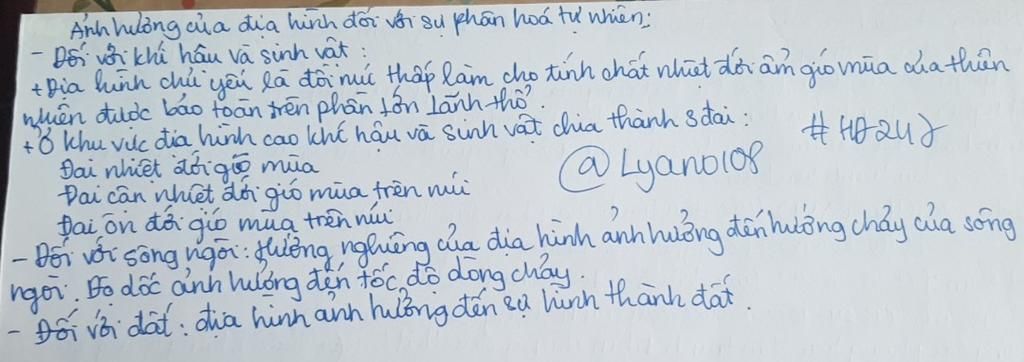 Ảnh hưởng của địa hình đối với sự phân hoá tự nhiên:
- Đối với khí hậu và sinh vật:
+ Địa hình chủ yếu là đồi núi thấp làm cho tính chất nhiệt đới ẩm gió mùa của thiên
nhiên được bảo toàn trên phần lớn lãnh thổ.
+ Ở khu vực địa hình cao khí hậu và sinh vật chia thành 3 đai:
#HĐ247
Đai nhiệt đới gió mùa
@Lyano108
Đai cận nhiệt đới gió mùa trên núi
Đai ôn đới gió mùa trên núi
- Đối với sông ngòi: Hướng nghiêng của địa hình ảnh hưởng đến hướng chảy của sông
ngòi. Độ dốc ảnh hưởng đến tốc độ dòng chảy.
- Đối với đất: địa hình ảnh hưởng đến sự hình thành đất.